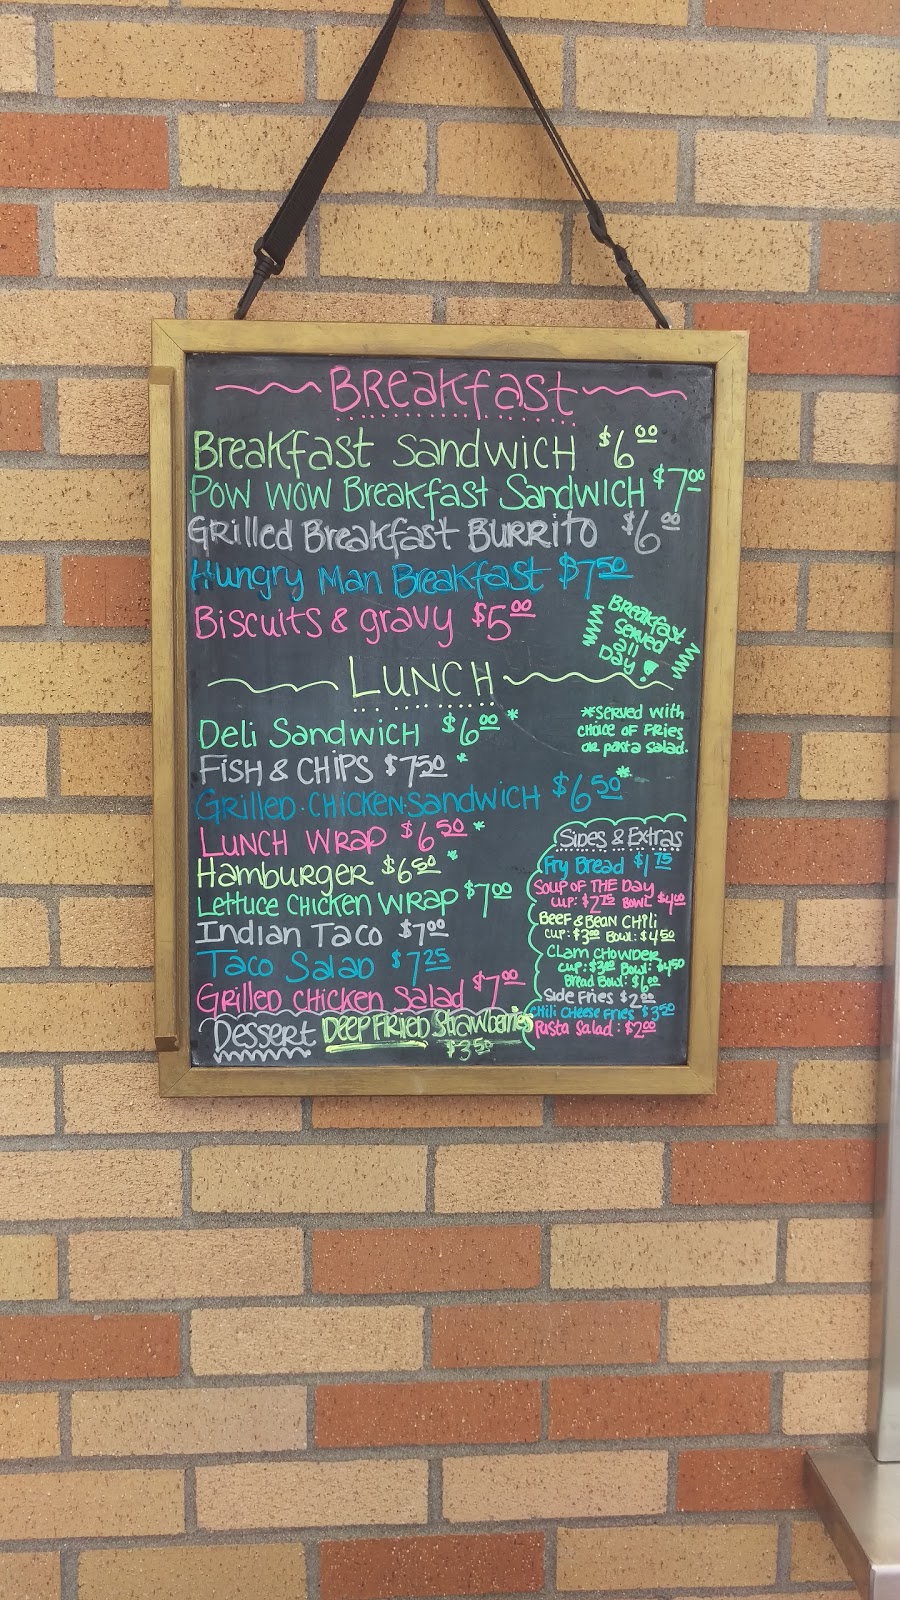 Breakfast
Breakfast Sandwich $6.00
Pow Wow Breakfast Sandwich $7.00
Grilled Breakfast Burrito $6.00
Hungry Man Breakfast $7.50
Biscuits & gravy $5.00
Breakfast
Served
all
Day!
Lunch
*Served with
choice of Fries
or pasta salad.
Deli Sandwich $6.00 *
Fish & Chips $7.50 *
Grilled Chicken Sandwich $6.50 *
Lunch Wrap $6.50 *
Hamburger $6.50 *
Lettuce Chicken Wrap $7.00
Indian Taco $7.00
Taco Salad $7.25
Grilled Chicken Salad $7.00
Dessert Deep Fried Strawberries
$3.50
Sides & Extras
Fry Bread $1.75
Soup of the Day
cup: $2.75 Bowl $4.00
Beef & Bean Chili
cup: $3.00 Bowl: $4.50
Clam Chowder
cup: $3.00 Bowl: $4.50
Bread Bowl: $6.00
Side Fries $2.00
Chili Cheese Fries $3.50
Pasta Salad: $2.00